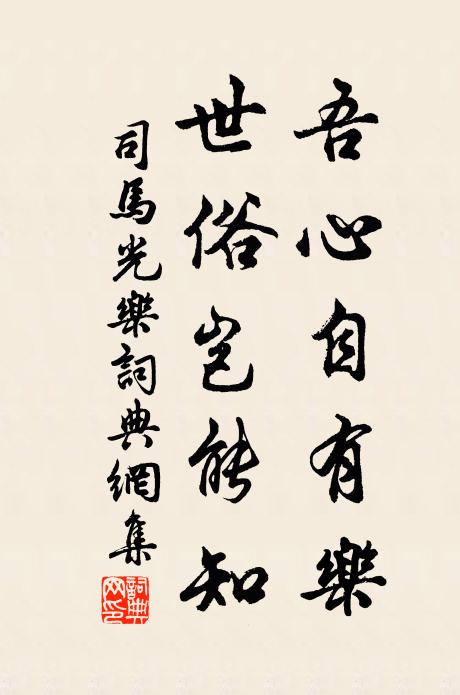 吾心自有樂
世俗豈能知
司馬光樂詞典網集
詞典网印